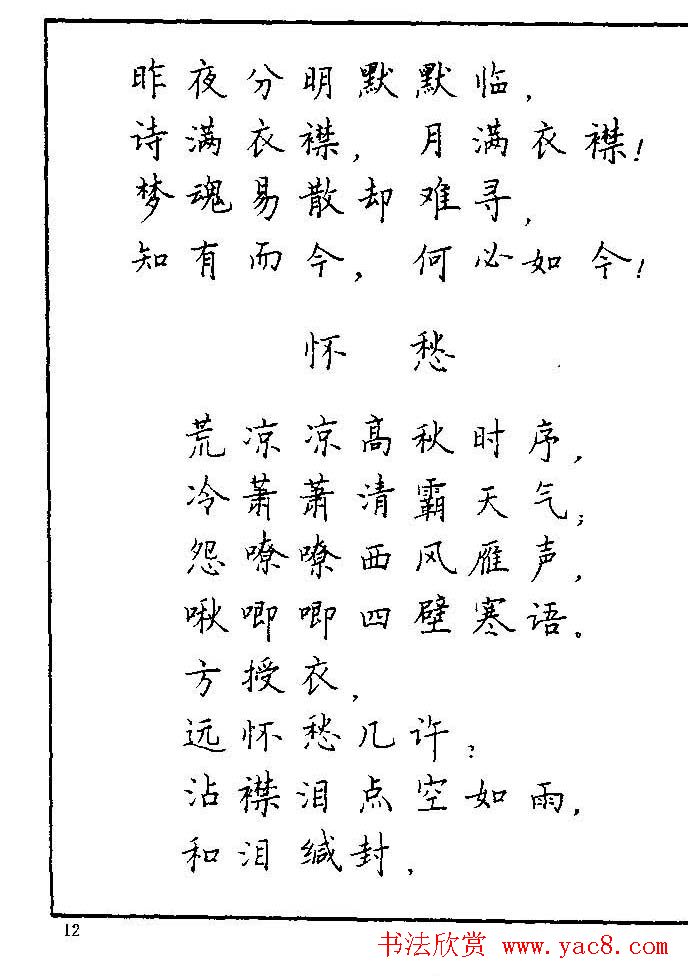 昨夜分明默默临，
诗满衣襟，月满衣襟！
梦魂易散却难寻，
知有而今，何必如今！
怀愁
荒凉凉高秋时序，
冷萧萧清霸天气；
怨嘹嘹西风雁声，
啾唧唧四壁寒语。
方授衣，
远怀愁几许？
沾襟泪点空如雨，
和泪缄封，
12
书法欣赏 www.yac8.com